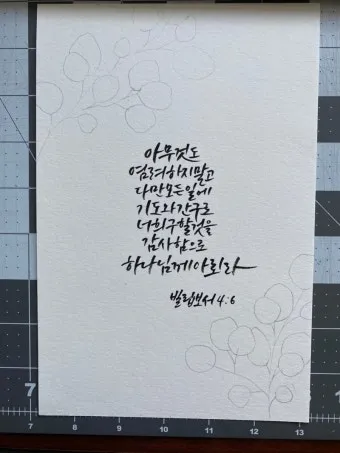 아무것도
염려하지말고
다만모든일에
기도와간구로
너희구할것을
감사함으로
하나님께아뢰라
빌립보서 4:6
7
7
7 8 9 10 11 12 13